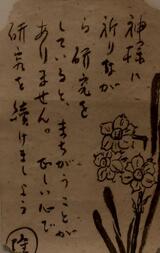 神様に
祈りなが
ら研究を
していると、まちがうことが
ありません。正しい心で
研究を続けましょう